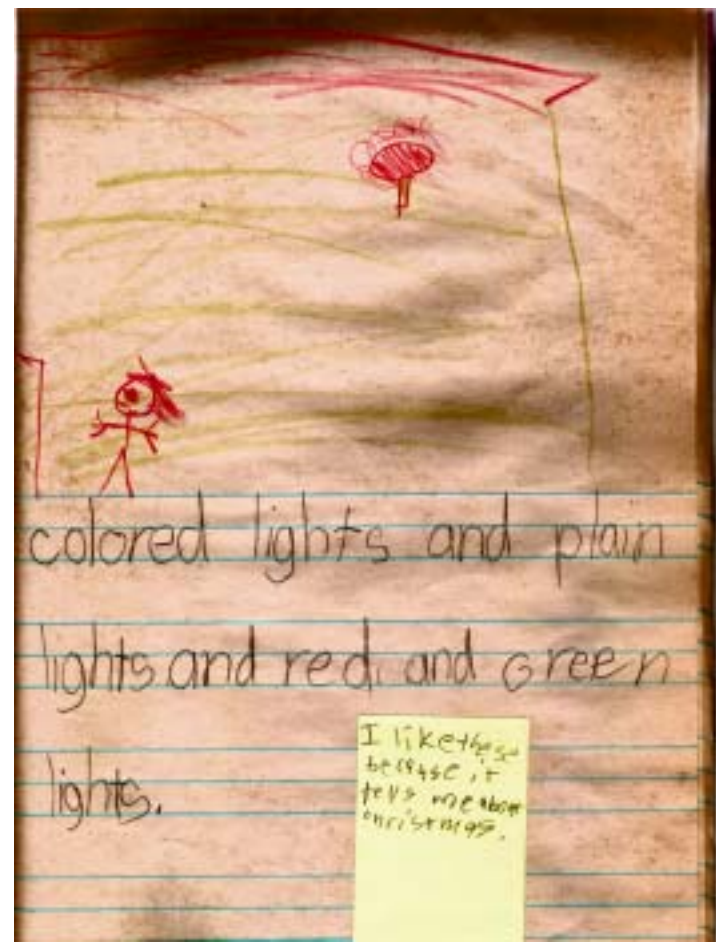 colored lights and plain
lights and red, and Green
lights.
I like these
because it
tells me about
christmas.